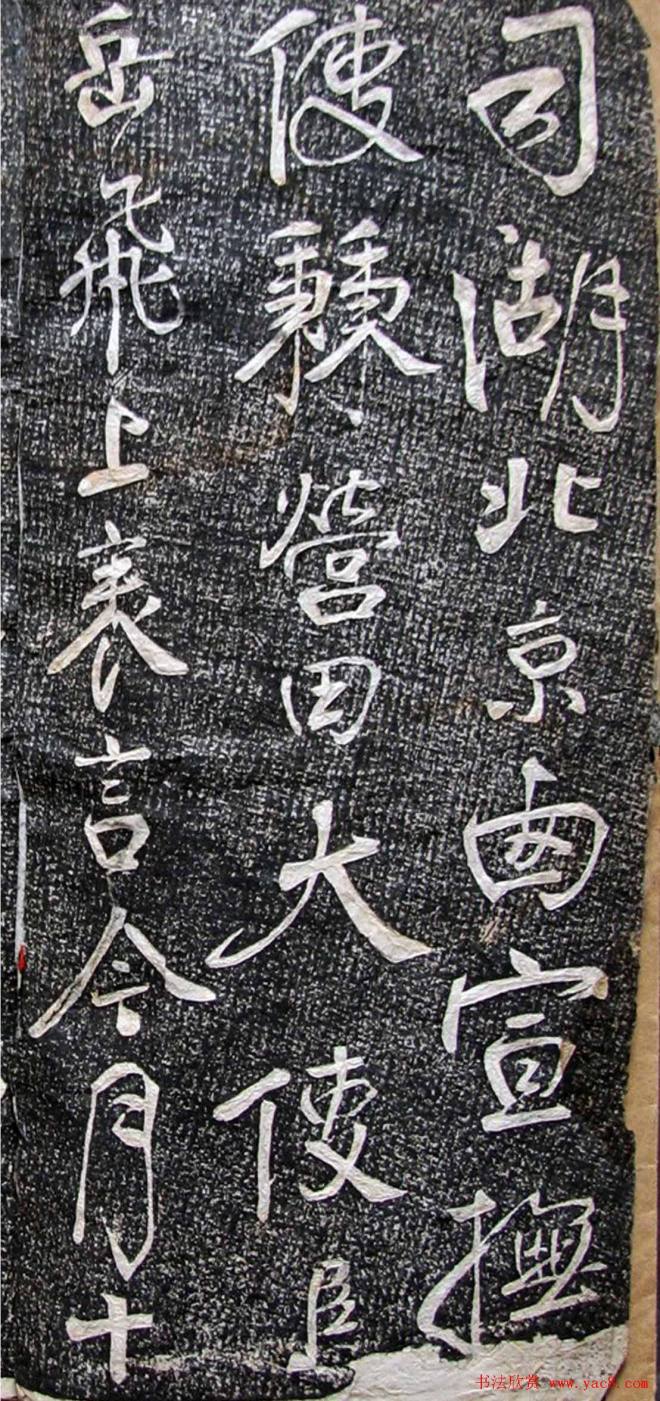 司湖北京西宣撫
使兼營田大使臣
岳飛上表言今月十
书法欣赏 www.yac8.com